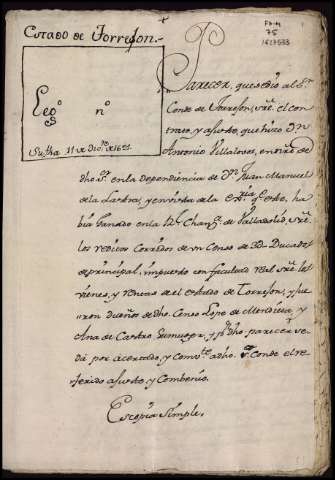 Estado de Torrejon.
Leg.º n.º
Su fha. 11 de Dic.re de 1621.
FR-M
75
1627538
Parecer, que se dio al S.r
Conde de Torrejon, sre. el con
trato, y afusto, que hizo D.n
Antonio Villalovos, en nre. de
dho. S.r en la dependiencia de D.n Juan Manuel
de la Lastra, y en vista de la ex.ria q.e este, ha
bía ganado en la R.l Chan.a de Valladolid, sre.
los reditos corridos de un censo de 3d Ducados
de principal, impuesto con facultad real sre. los
vienes, y rentas de el estado de Torrejon, y fue
ron dueños de dho. Censo Lope de Mendieta, y
Ana de Castro su muger, y p.r dho. parecer se
da por acertado, y combe.te a dho. S.r Conde el re
ferido afusto, y Combenio.
Es copia Simple.